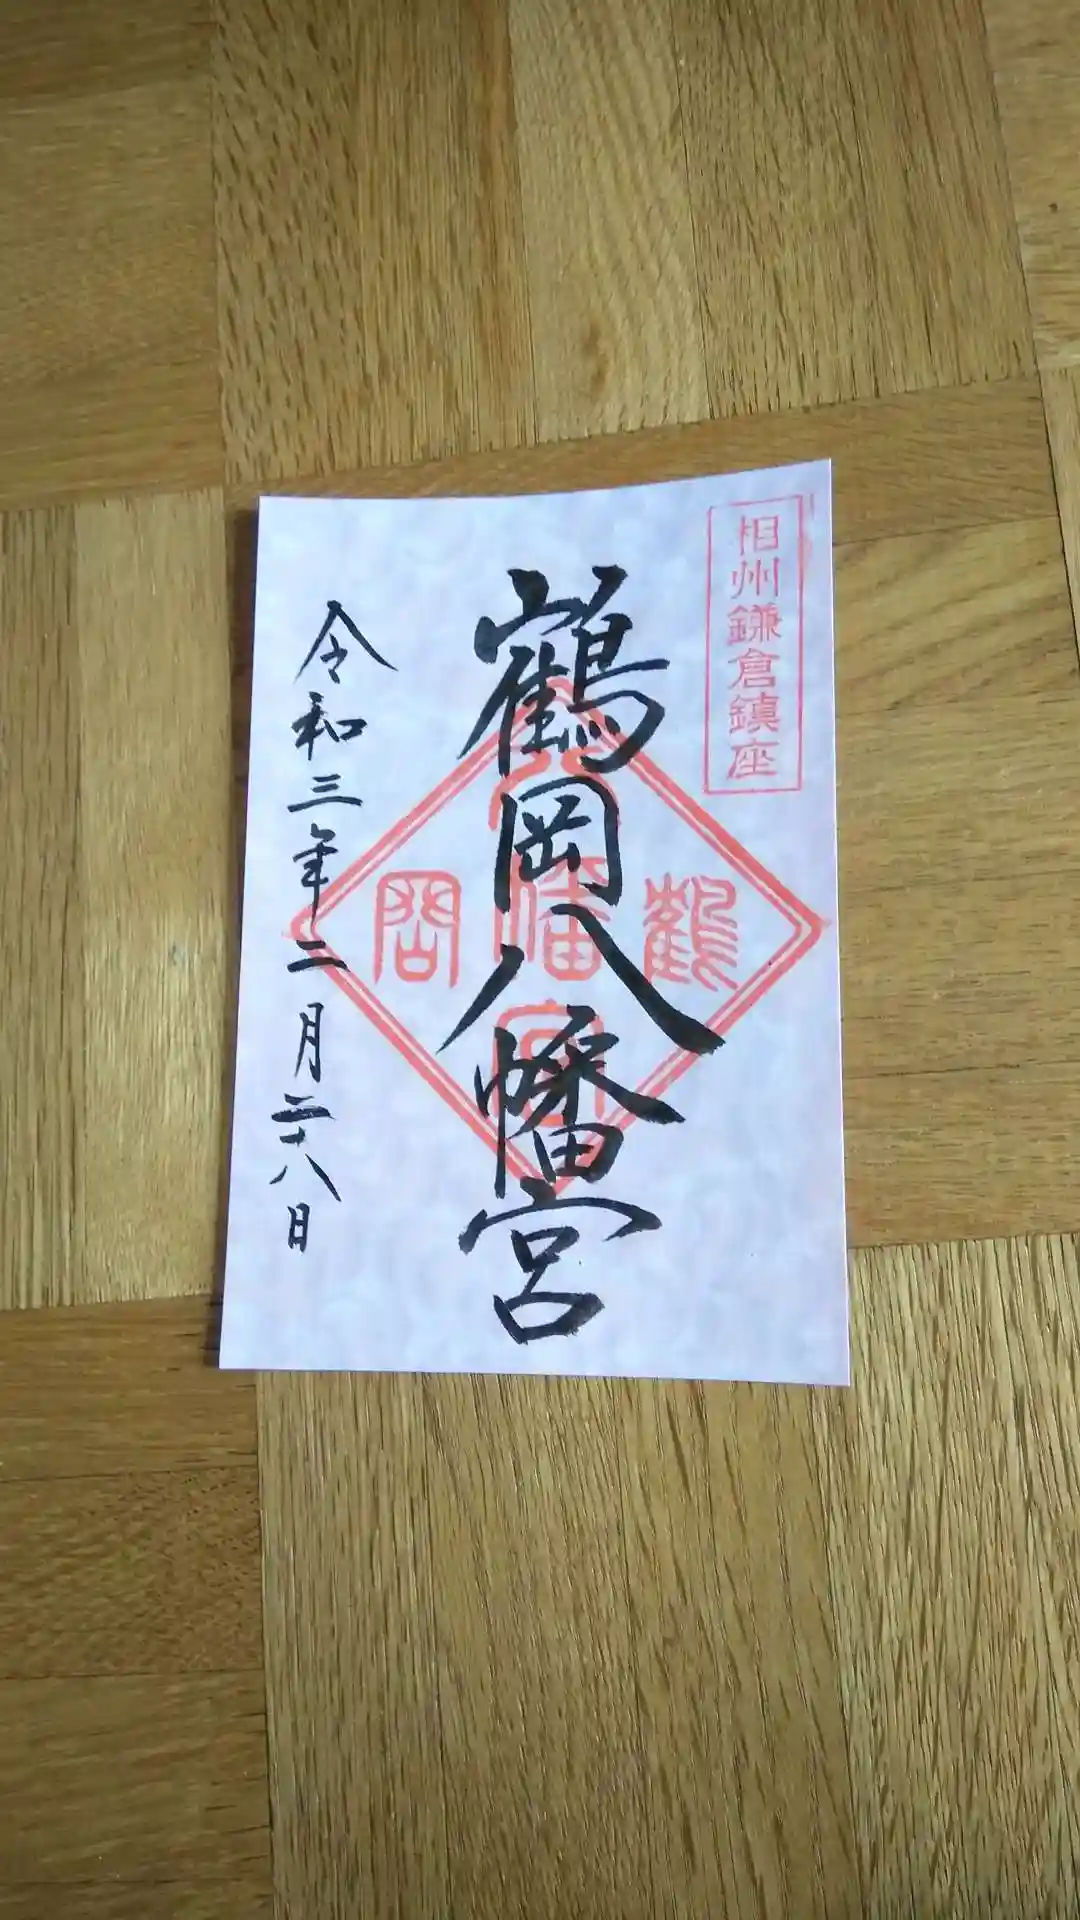 相州鎌倉鎮座
鶴岡八幡宮
鶴
八幡宮
岡
令和三年二月二十八日